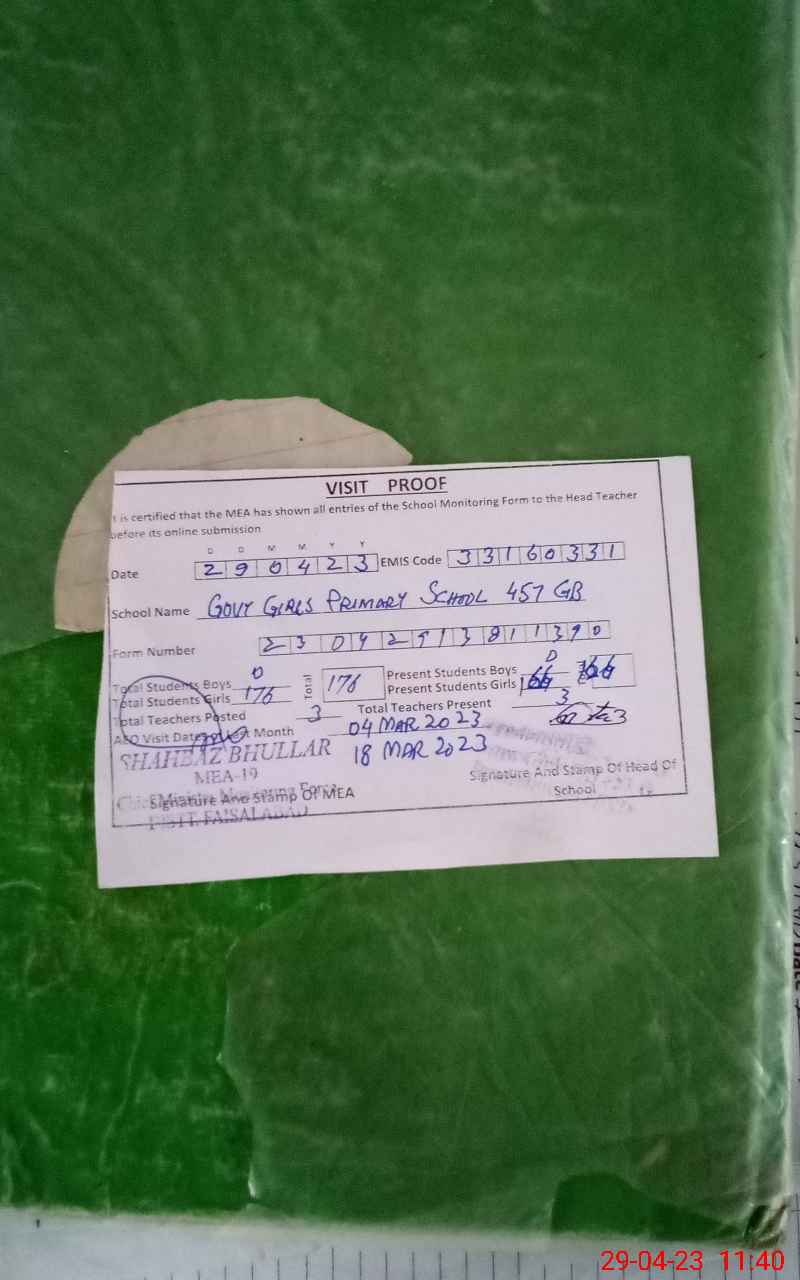 VISIT PROOF
t is certified that the MEA has shown all entries of the School Monitoring Form to the Head Teacher
before its online submission
D D M M Y Y
Date 2 9 0 4 2 3 EMIS Code 3 3 1 6 0 3 3 1
School Name GOVT GIRLS PRIMARY SCHOOL 457 GB
Form Number 2 3 0 4 2 9 1 3 8 1 1 3 9 0
Total Students Boys 0 Total 176 Present Students Boys 0
Total Students Girls 176 Present Students Girls 166 166
Total Teachers Posted 3 Total Teachers Present 3
AEO Visit Date Month 04 MAR 2023
18 MAR 2023
SHAHBAZ BHULLAR
MEA-19
Signature And Stamp Of MEA
DISTT. FAISALABAD
Signature And Stamp Of Head Of
School
29-04-23 11:40